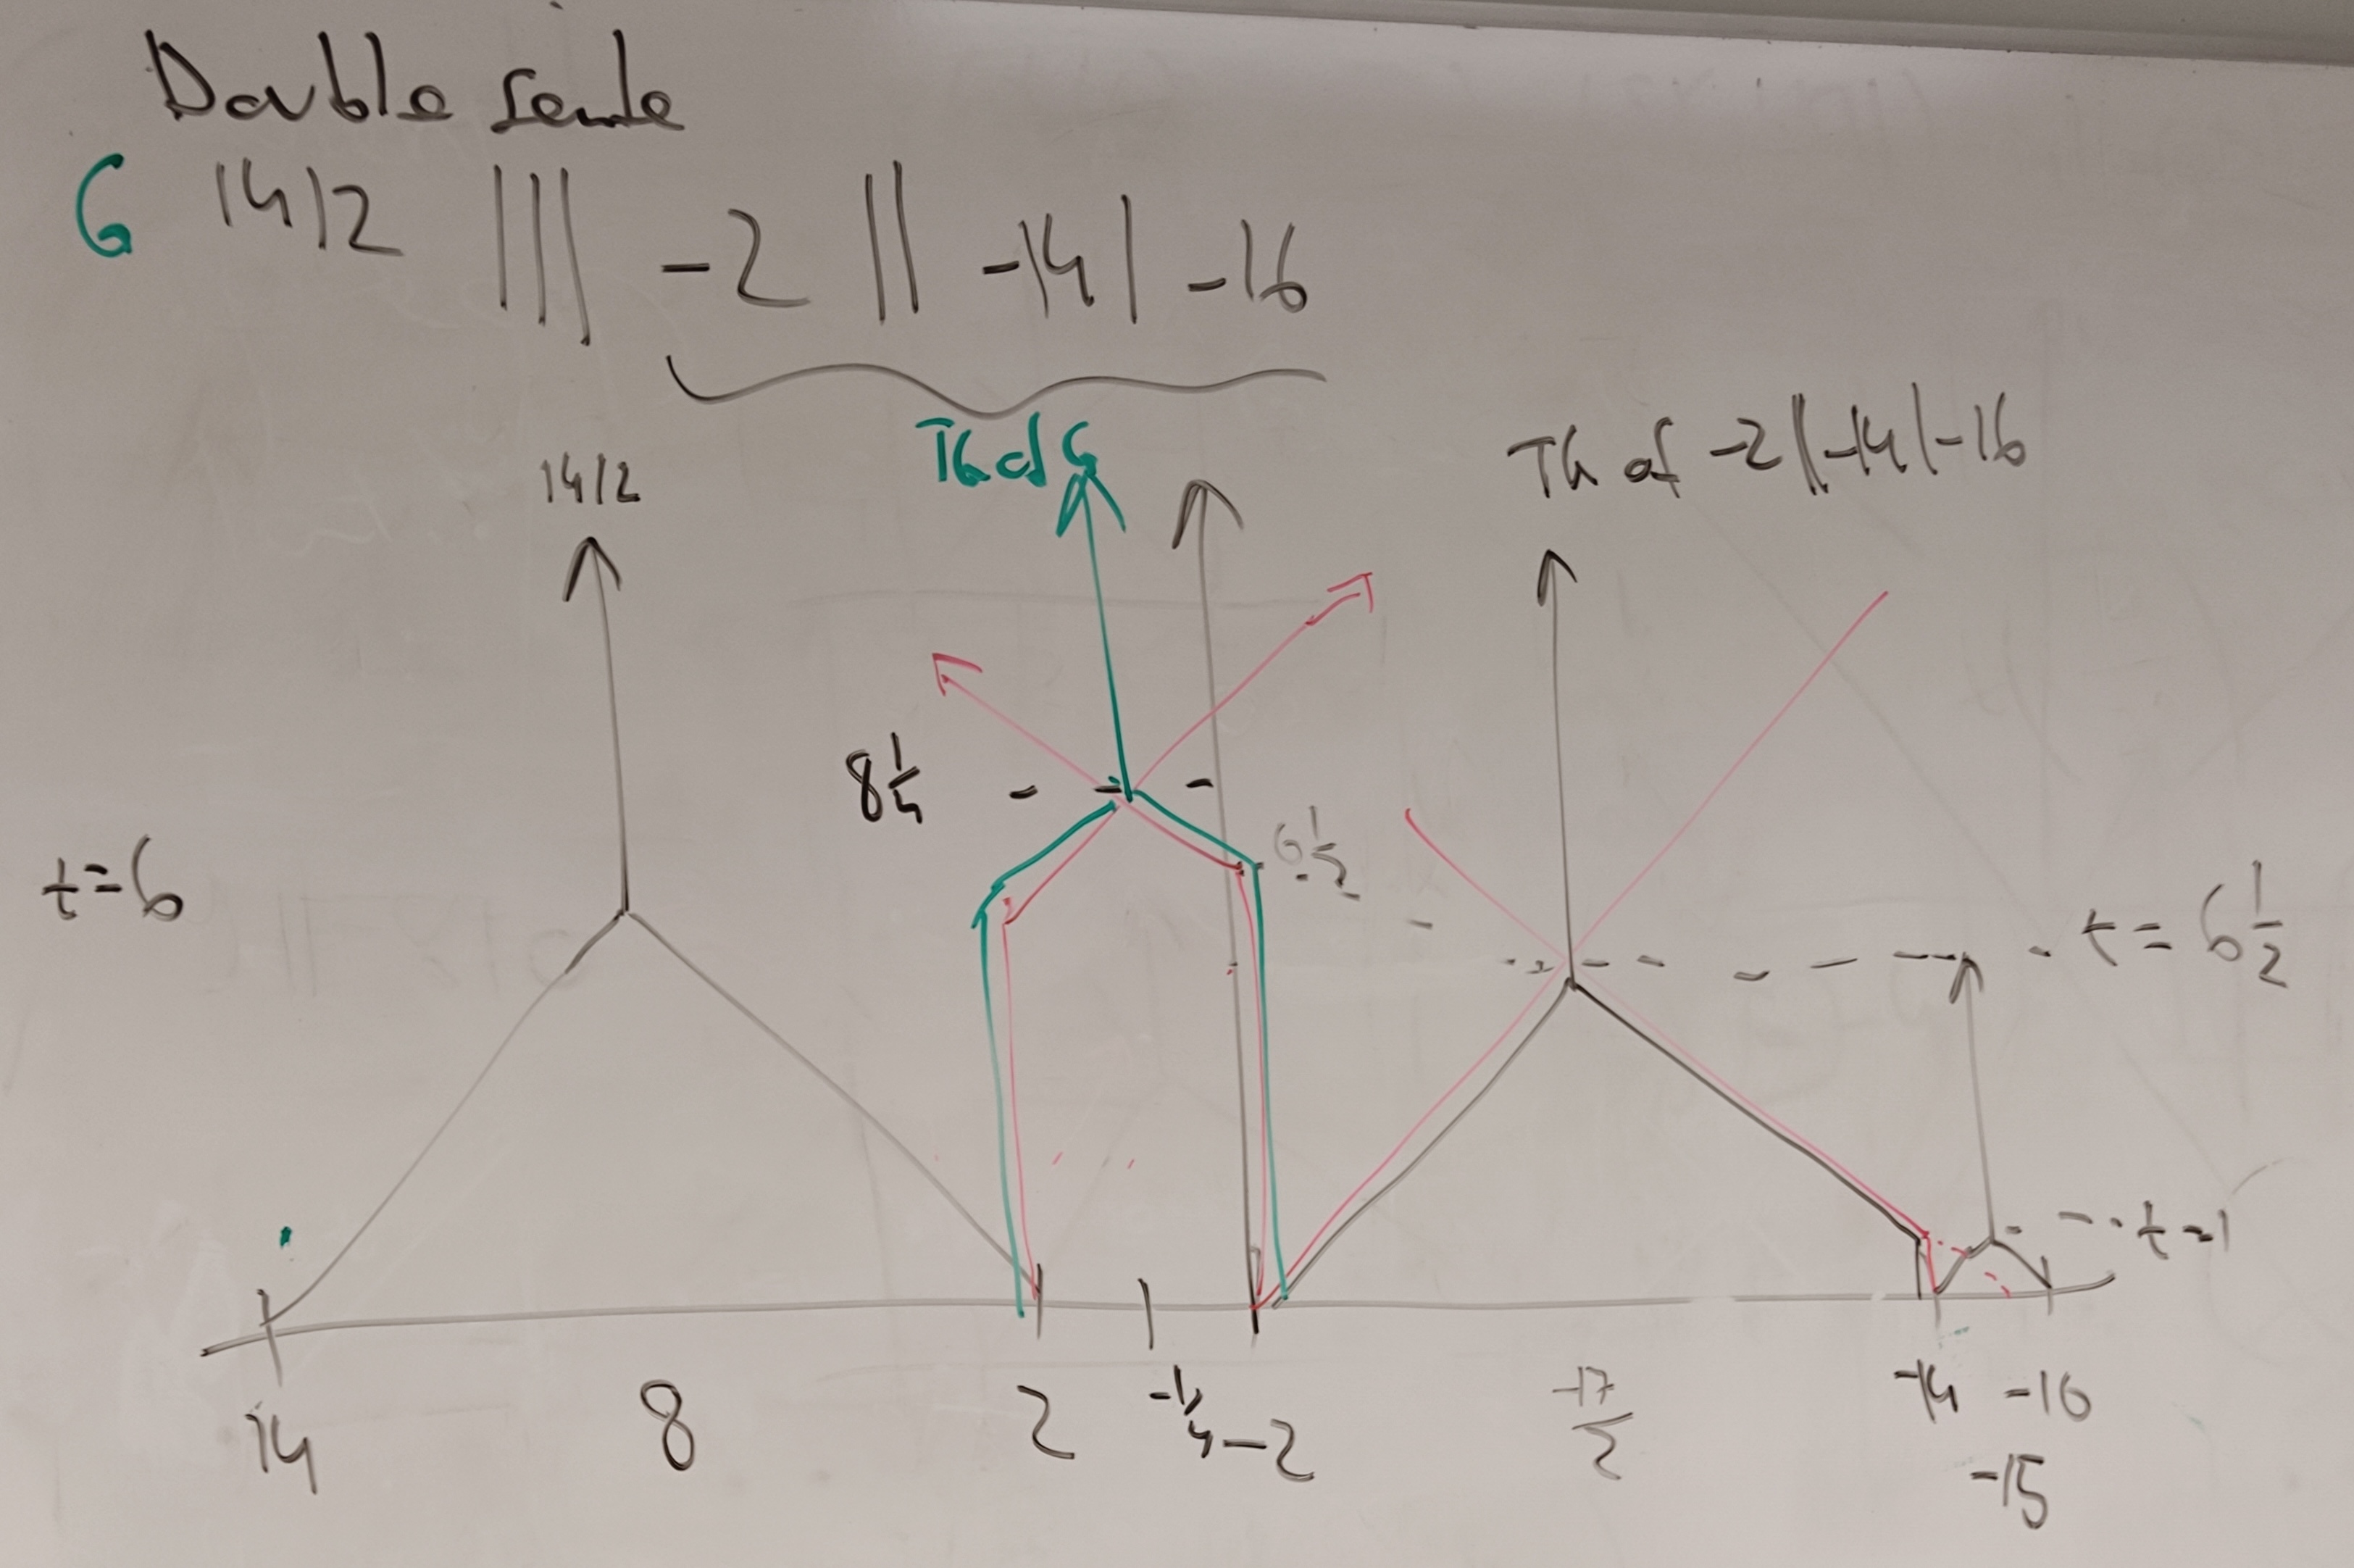 Double sente
G 14|2 ||| -2 || -14 | -16
14|2
TG of G
TG of -2||-14|-16
8 1/4
6 1/2
t=6
t = 6 1/2
t=1
14 8 2 -1/4 -2 -17/2 -14 -16
-15